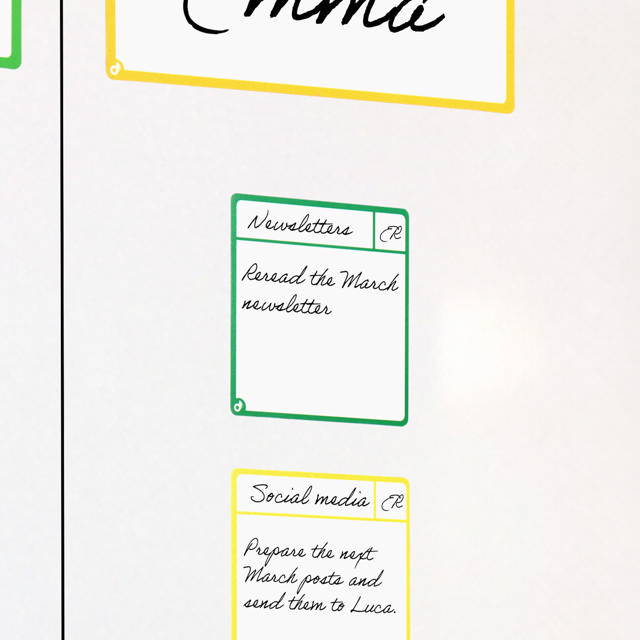 Emma
Newsletters
ER
Reread the March
newsletter
Social media
ER
Prepare the next
March posts and
send them to Luca.